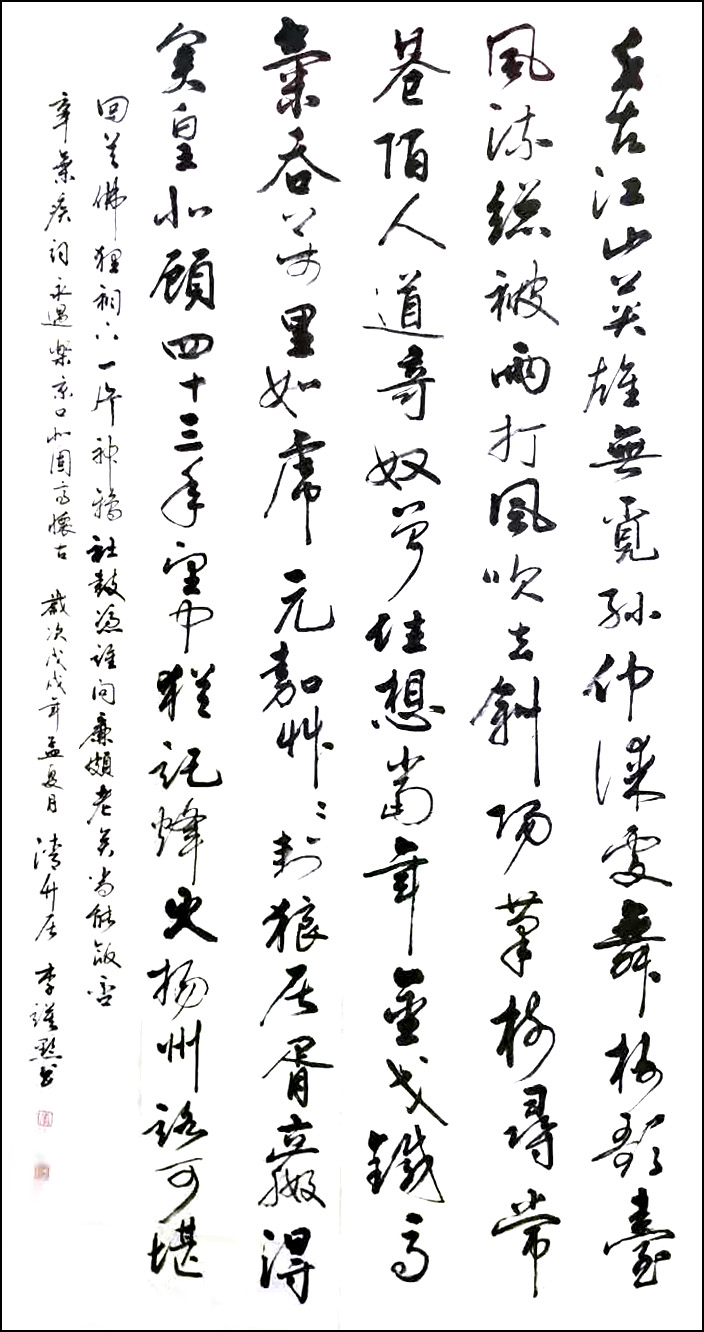 千古江山英雄無覓孫仲謀處舞榭歌臺
風流總被雨打風吹去斜陽草樹尋常
巷陌人道寄奴曾住想當年金戈鐵馬
氣吞萬里如虎元嘉艸〻封狼居胥贏得
倉皇北顧四十三年望中猶記烽火揚州路可堪
回首佛狸祠下一片神鴉社鼓憑誰問廉頗老矣尚能飯否
辛棄疾詞永遇樂京口北固亭懷古 歲次戊戌年孟夏月 清竹居 李